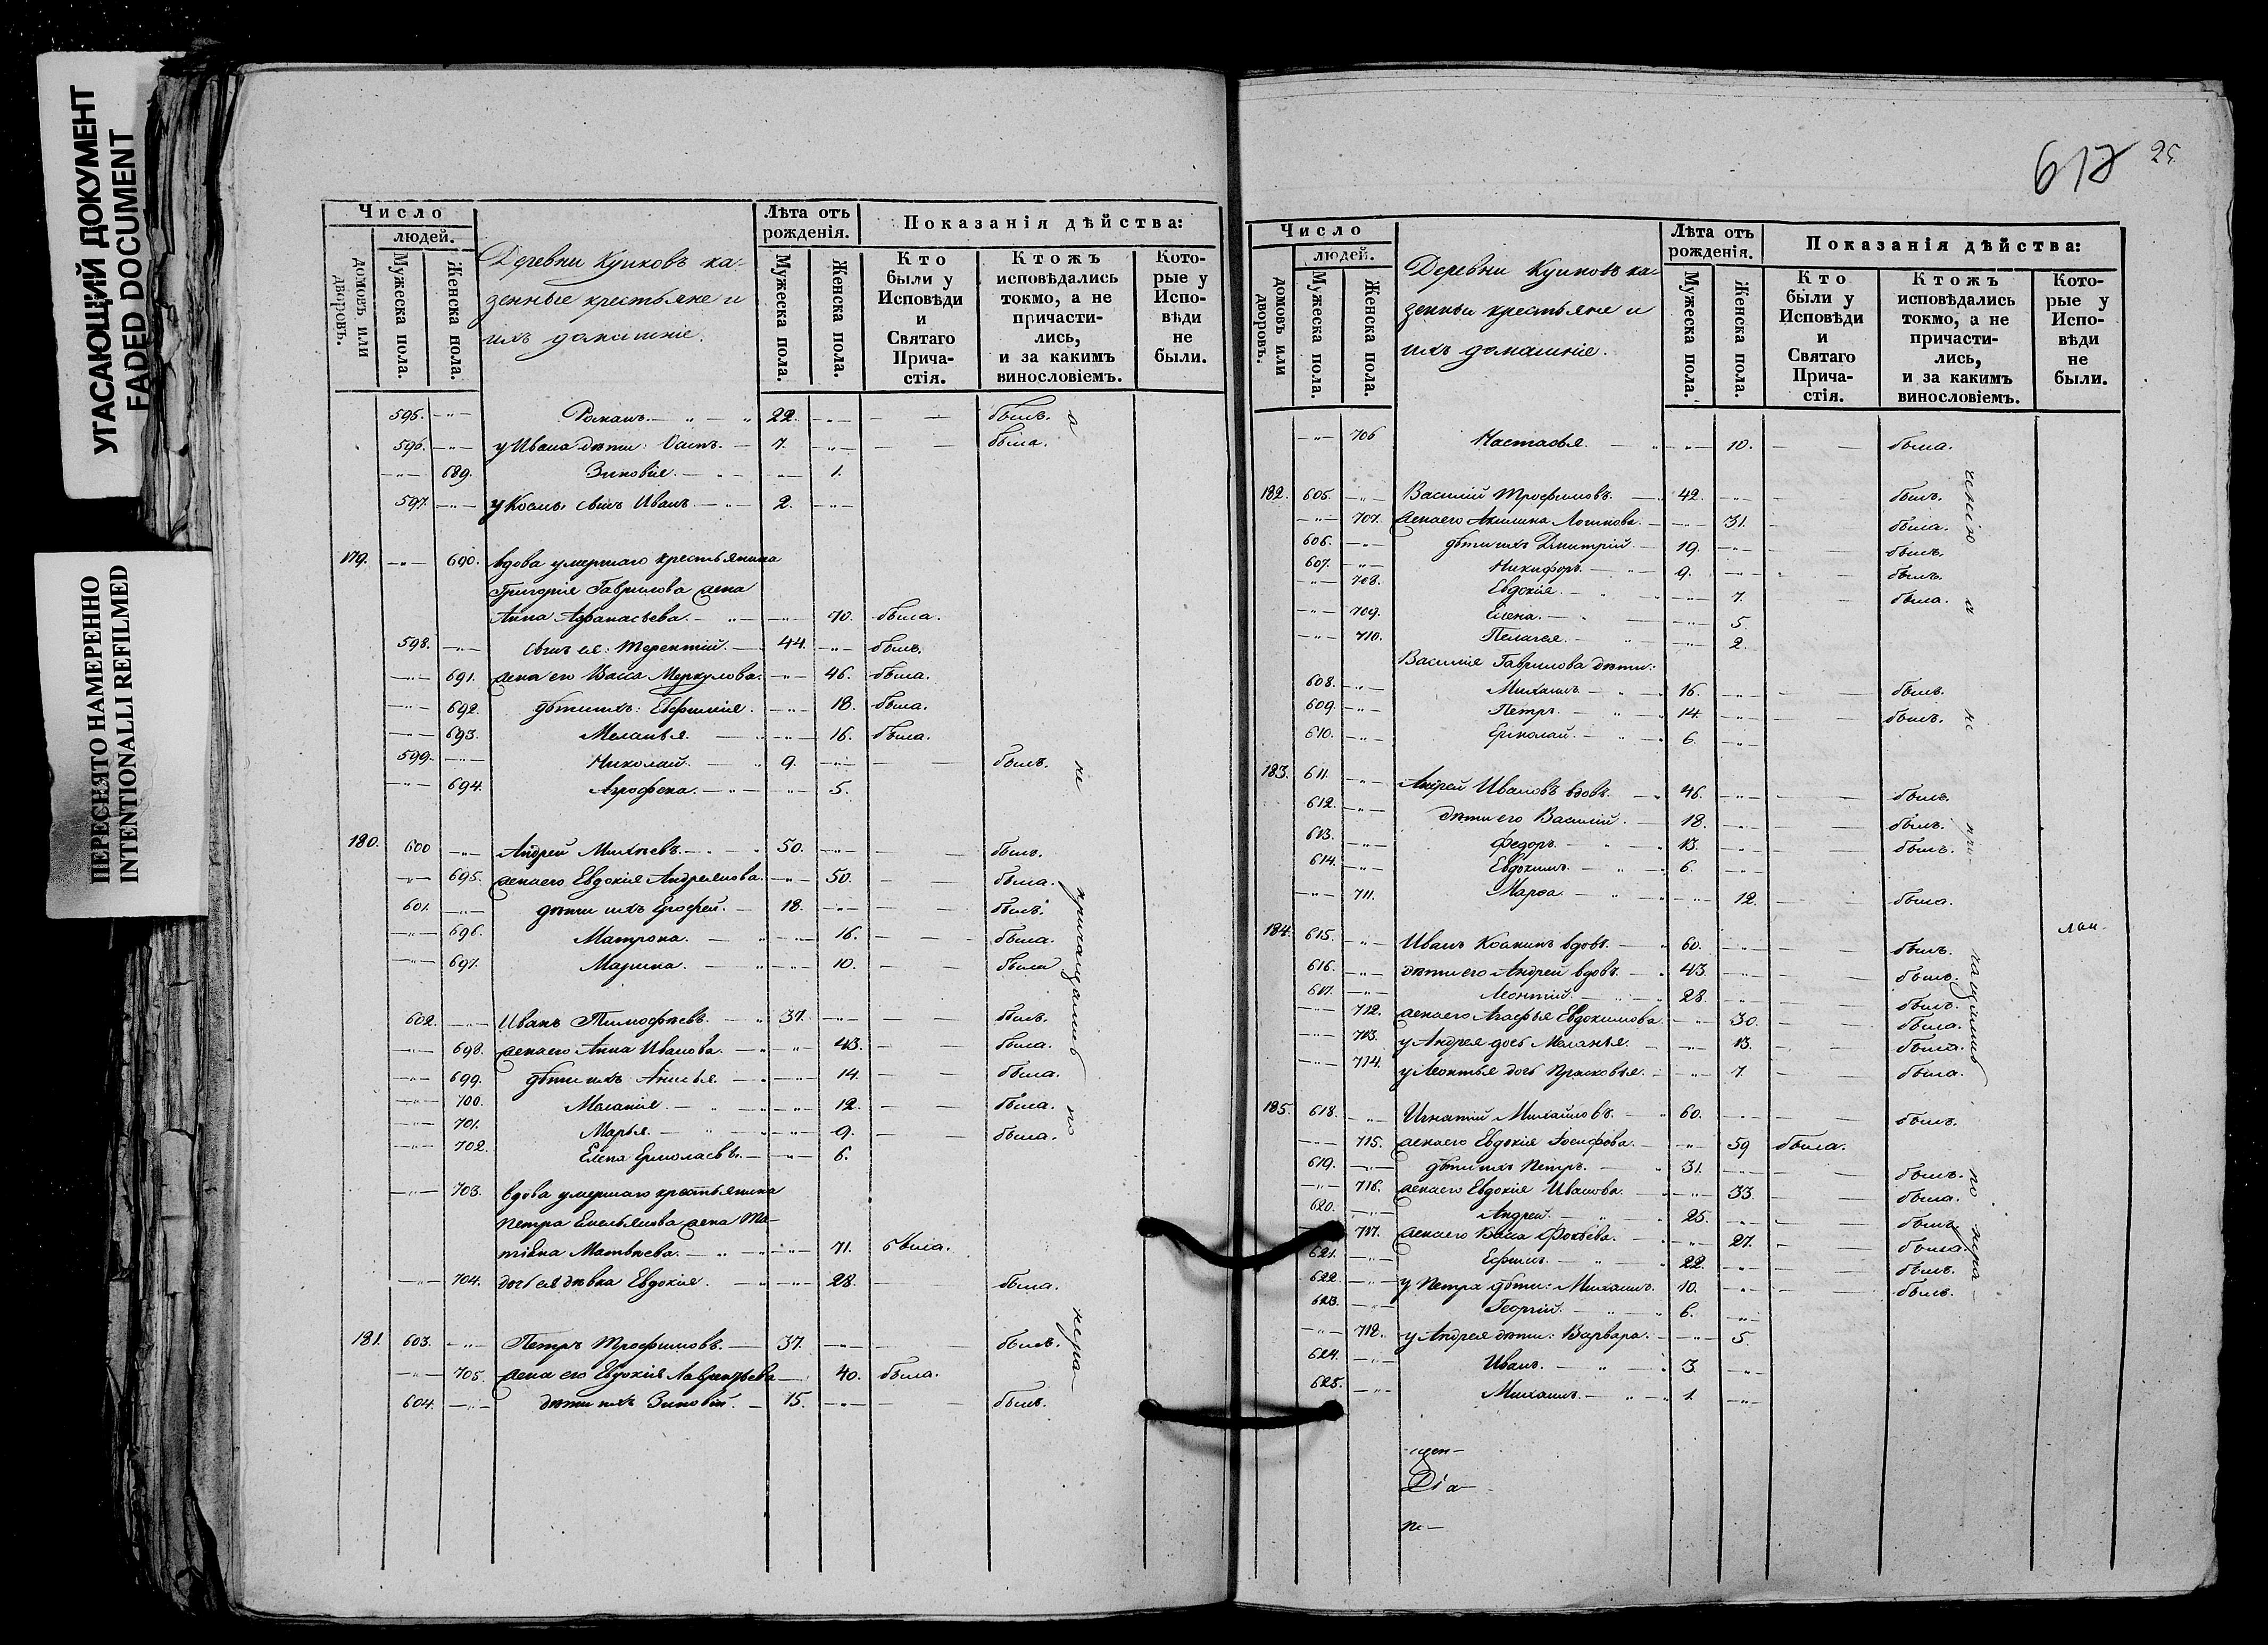 УГАСАЮЩИЙ ДОКУМЕНТ
FADED DOCUMENT
ПЕРЕСНЯТО НАМЕРЕННО
INTENTIONALLI REFILMED
Число
людей.
домовъ или дворовъ.
Мужеска пола.
Женска пола.
Деревни Куиковъ ка-
зенные крестьяне и
ихъ домашніе.
Лѣта отъ рожденія.
Мужеска пола.
Женска пола.
Показанія дѣйства:
Кто были у Исповѣди и Святаго Причастія.
Ктожъ исповѣдались токмо, а не причастились, и за какимъ винословіемъ.
Которые у Исповѣди не были.
595. Романъ. 22. былъ. а
596. у Ивана дѣти: 7. была.
689. Зиновія. 1.
597. у Космы сынъ Иванъ. 2.
179. 690. вдова умершаго крестьянина
Григорія Гаврилова жена
Анна Афанасьева. 70. была.
598. сынъ ея: Терентій. 44. былъ.
691. жена его Васса Меркулова. 46. была.
692. дѣти ихъ: Евфимія. 18. была.
693. Меланья. 16. была.
599. Николай. 9. былъ. не
694. Агрофена. 5.
180. 600 Андрей Михѣевъ. 50. былъ.
695. жена его Евдокія Андреянова. 50. была. причащались
601. дѣти ихъ Ерофей. 18. былъ.
696. Матрона. 16. была.
697. Марина. 10. была
602. Иванъ Тимофѣевъ. 37. былъ.
698. жена его Анна Иванова. 43. была.
699. дѣти ихъ Анисья. 14. была.
700. Маланія. 12. была. по
701. Марья. 9. была.
702. Елена Ермолаевъ. 6.
703. вдова умершаго крестьянина
Петра Емельянова жена Та-
тіана Матвѣева. 71. была.
704. дочь ея дѣвка Евдокія. 28. была.
нера-
181. 603. Петръ Трофимовъ. 37. былъ.
705. жена его Евдокія Лаврентьева 40. была.
604. дѣти ихъ Зиновій. 15. былъ.
617 25
Число
людей.
домовъ или дворовъ.
Мужеска пола.
Женска пола.
Деревни Куиковъ ка-
зенныи крестьяне и
ихъ домашніе.
Лѣта отъ рожденія.
Мужеска пола.
Женска пола.
Показанія дѣйства:
Кто были у Исповѣди и Святаго Причастія.
Ктожъ исповѣдались токмо, а не причастились, и за какимъ винословіемъ.
Которые у Исповѣди не были.
706 Настасья. 10. была.
182. 605. Василій Трофимовъ. 42. былъ.
707. жена его Акилина Логинова. 31. была.
606. дѣти ихъ Дмитрій. 19. былъ.
607. Никифоръ. 9. былъ.
708. Евдокія. 7. была. а
709. Елена. 5.
710. Пелагея. 2.
Василія Гаврилова дѣти:
608. Михаилъ. 16. былъ.
609. Петръ. 14. былъ. не
610. Ермолай. 6.
183. 611. Андрей Ивановъ вдовъ. 46. былъ.
612. дѣти его Василій. 18. былъ. при-
613. Федоръ. 13. былъ.
614. Евдокимъ. 6.
711. Марѳа. 12. была.
184. 615. Иванъ вдовъ. 60. былъ.
616. дѣти его Андрей вдовъ. 43. былъ. чащались
617. Леонтій. 28. былъ.
712. жена его Агафья Евдокимова. 30. была.
713. у Андрея дочь Меланья. 13. была.
714. у Леонтья дочь Прасковья. 7. была.
185. 618. Игнатій Михайловъ. 60. былъ.
715. жена его Евдокія Іосифова. 59 была.
619. дѣти ихъ Петръ. 31. былъ. по
716. жена его Евдокія Иванова. 33. была.
620. Андрей. 25. былъ. нера-
717. жена его Васса Фокѣева. 27. была.
621. Ефимъ. 22. былъ.
622. у Петра дѣти: Михаилъ. 10. былъ.
623. Георгій. 6.
718. у Андрея дѣти: Варвара. 5.
624. Иванъ. 3.
625. Михаилъ. 1.
щен-
Діа-